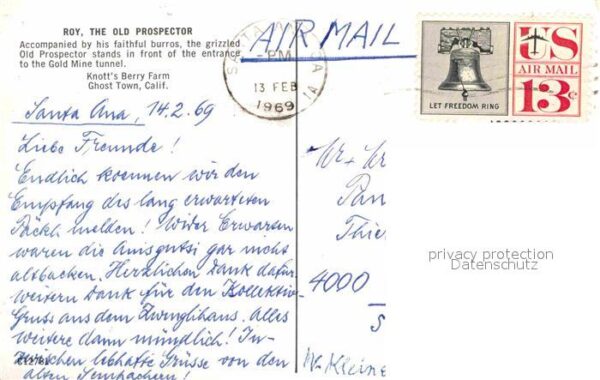 ROY, THE OLD PROSPECTOR
Accompanied by his faithful burros, the grizzled
Old Prospector stands in front of the entrance
to the Gold Mine tunnel.
Knott's Berry Farm
Ghost Town, Calif.
AIR MAIL
SANTA ANA
PM
13 FEB
1969
US
AIR MAIL
13c
LET FREEDOM RING
Santa Ana, 14.2.69
Liebe Freunde!
Endlich koennen wir den
Empfang des lang erwarteten
Päckli melden! Wider Erwarten
waren die Anisguetsi gar nicht
altbacken. Herzlichen Dank dafür,
weitern Dank für den Kollektiv-
Gruss aus dem Zwinglihaus. Alles
weitere dann mündlich! In-
zwischen lebhafte Grüsse von den
alten Sempachern!
4000
privacy protection
Datenschutz